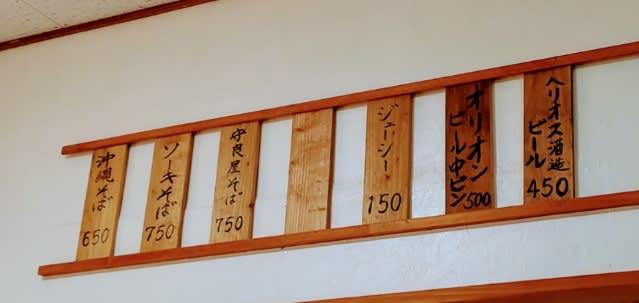 ヘリオス酒造
ビール
450
オリオン
ビール中ビン
500
ジューシー
150
守良屋そば
750
ソーキそば
750
沖縄そば
650